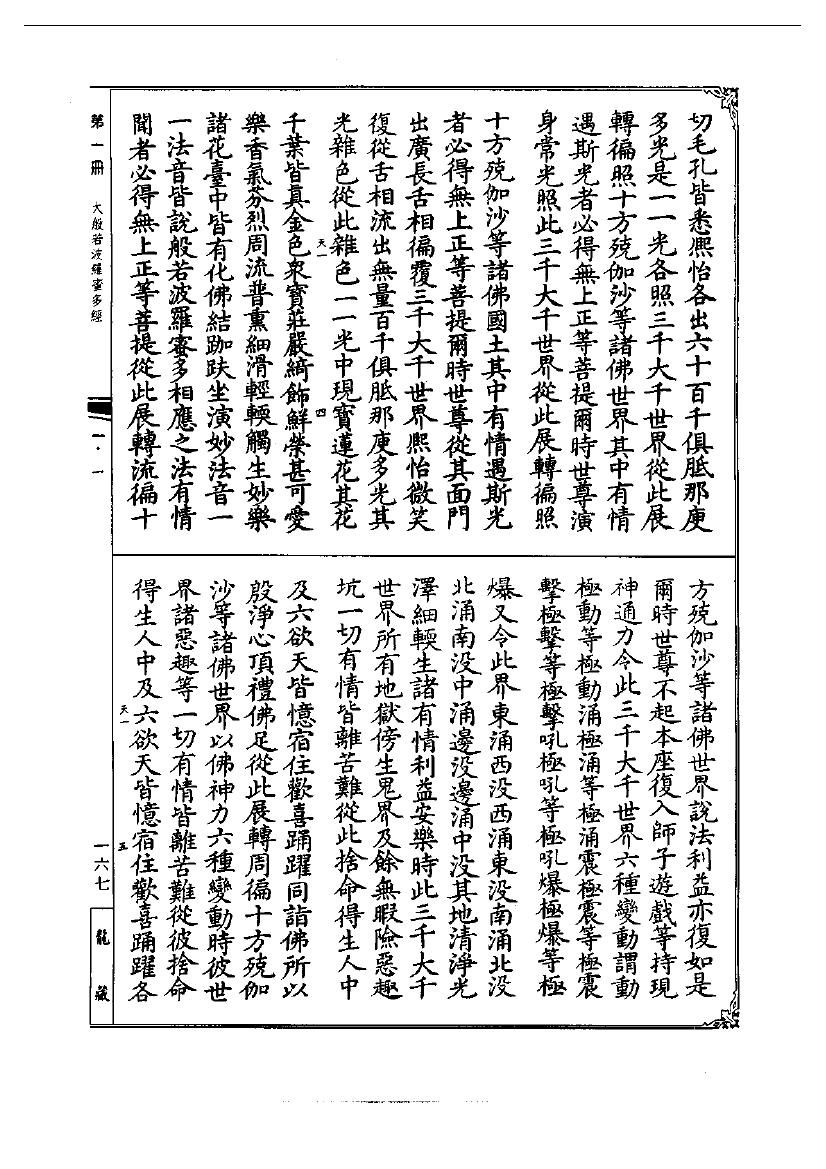 切毛孔皆悉熙怡各出六十百千俱胝那庾
多光是一一光各照三千大千世界從此展
轉徧照十方殑伽沙等諸佛世界其中有情
遇斯光者必得無上正等菩提爾時世尊演
身常光照此三千大千世界從此展轉徧照
十方殑伽沙等諸佛國土其中有情遇斯光
者必得無上正等菩提爾時世尊從其面門
出廣長舌相徧覆三千大千世界熙怡微笑
復從舌相流出無量百千俱胝那庾多光其
光雜色從此雜色一一光中現寶蓮花其花
天一 四
千葉皆真金色眾寶莊嚴綺飾鮮榮甚可愛
樂香氣芬烈周流普熏細滑輕輭觸生妙樂
諸花臺中皆有化佛結跏趺坐演妙法音一
一法音皆說般若波羅蜜多相應之法有情
聞者必得無上正等菩提從此展轉流徧十
方殑伽沙等諸佛世界說法利益亦復如是
爾時世尊不起本座復入師子遊戲等持現
神通力令此三千大千世界六種變動謂動
極動等極動涌極涌等極涌震極震等極震
擊極擊等極擊吼極吼等極吼爆極爆等極
爆又令此界東涌西没西涌東没南涌北没
北涌南没中涌邊没邊涌中没其地清淨光
澤細輭生諸有情利益安樂時此三千大千
世界所有地獄傍生鬼界及餘無暇險惡趣
坑一切有情皆離苦難從此捨命得生人中
及六欲天皆憶宿住歡喜踊躍同詣佛所以
殷淨心頂禮佛足從此展轉周徧十方殑伽
沙等諸佛世界以佛神力六種變動時彼世
界諸惡趣等一切有情皆離苦難從彼捨命
得生人中及六欲天皆憶宿住歡喜踊躍各
天一 五
第一冊 大般若波羅蜜多經
一·一
一六七
龍藏